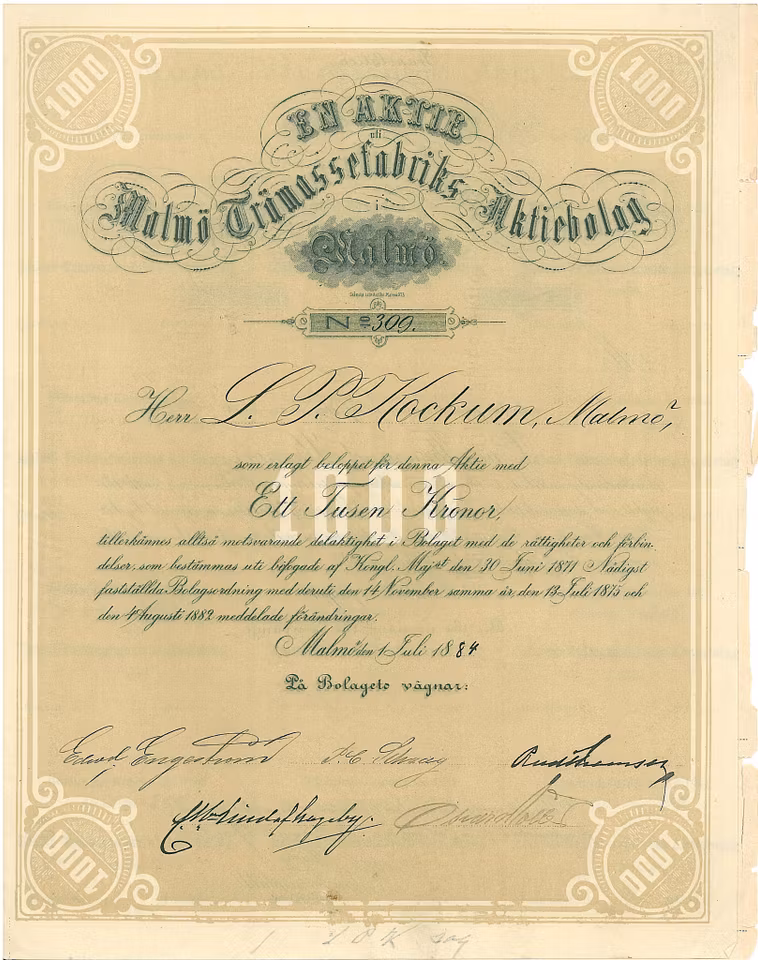 1000 1000
EN AKTIE
uti
Malmö Trämassefabriks Aktiebolag
i
Malmö.
No 309.
Herr L. P. Kockum, Malmö,
som erlagt beloppet för denna Aktie med
1000
Ett Tusen Kronor,
tillerkännes alltså motsvarande delaktighet i Bolaget med de rättigheter och förbin-
delser, som bestämmas uti bifogade af Kongl. Maj:st den 30 Juni 1871 Nådigst
fastställda Bolagsordning med deruti den 14 November samma år, den 13 Juli 1875 och
den 4 Augusti 1882 meddelade förändringar.
Malmö den 1 Juli 1884
På Bolagets vägnar:
Edvd. Engeström
1000 1000